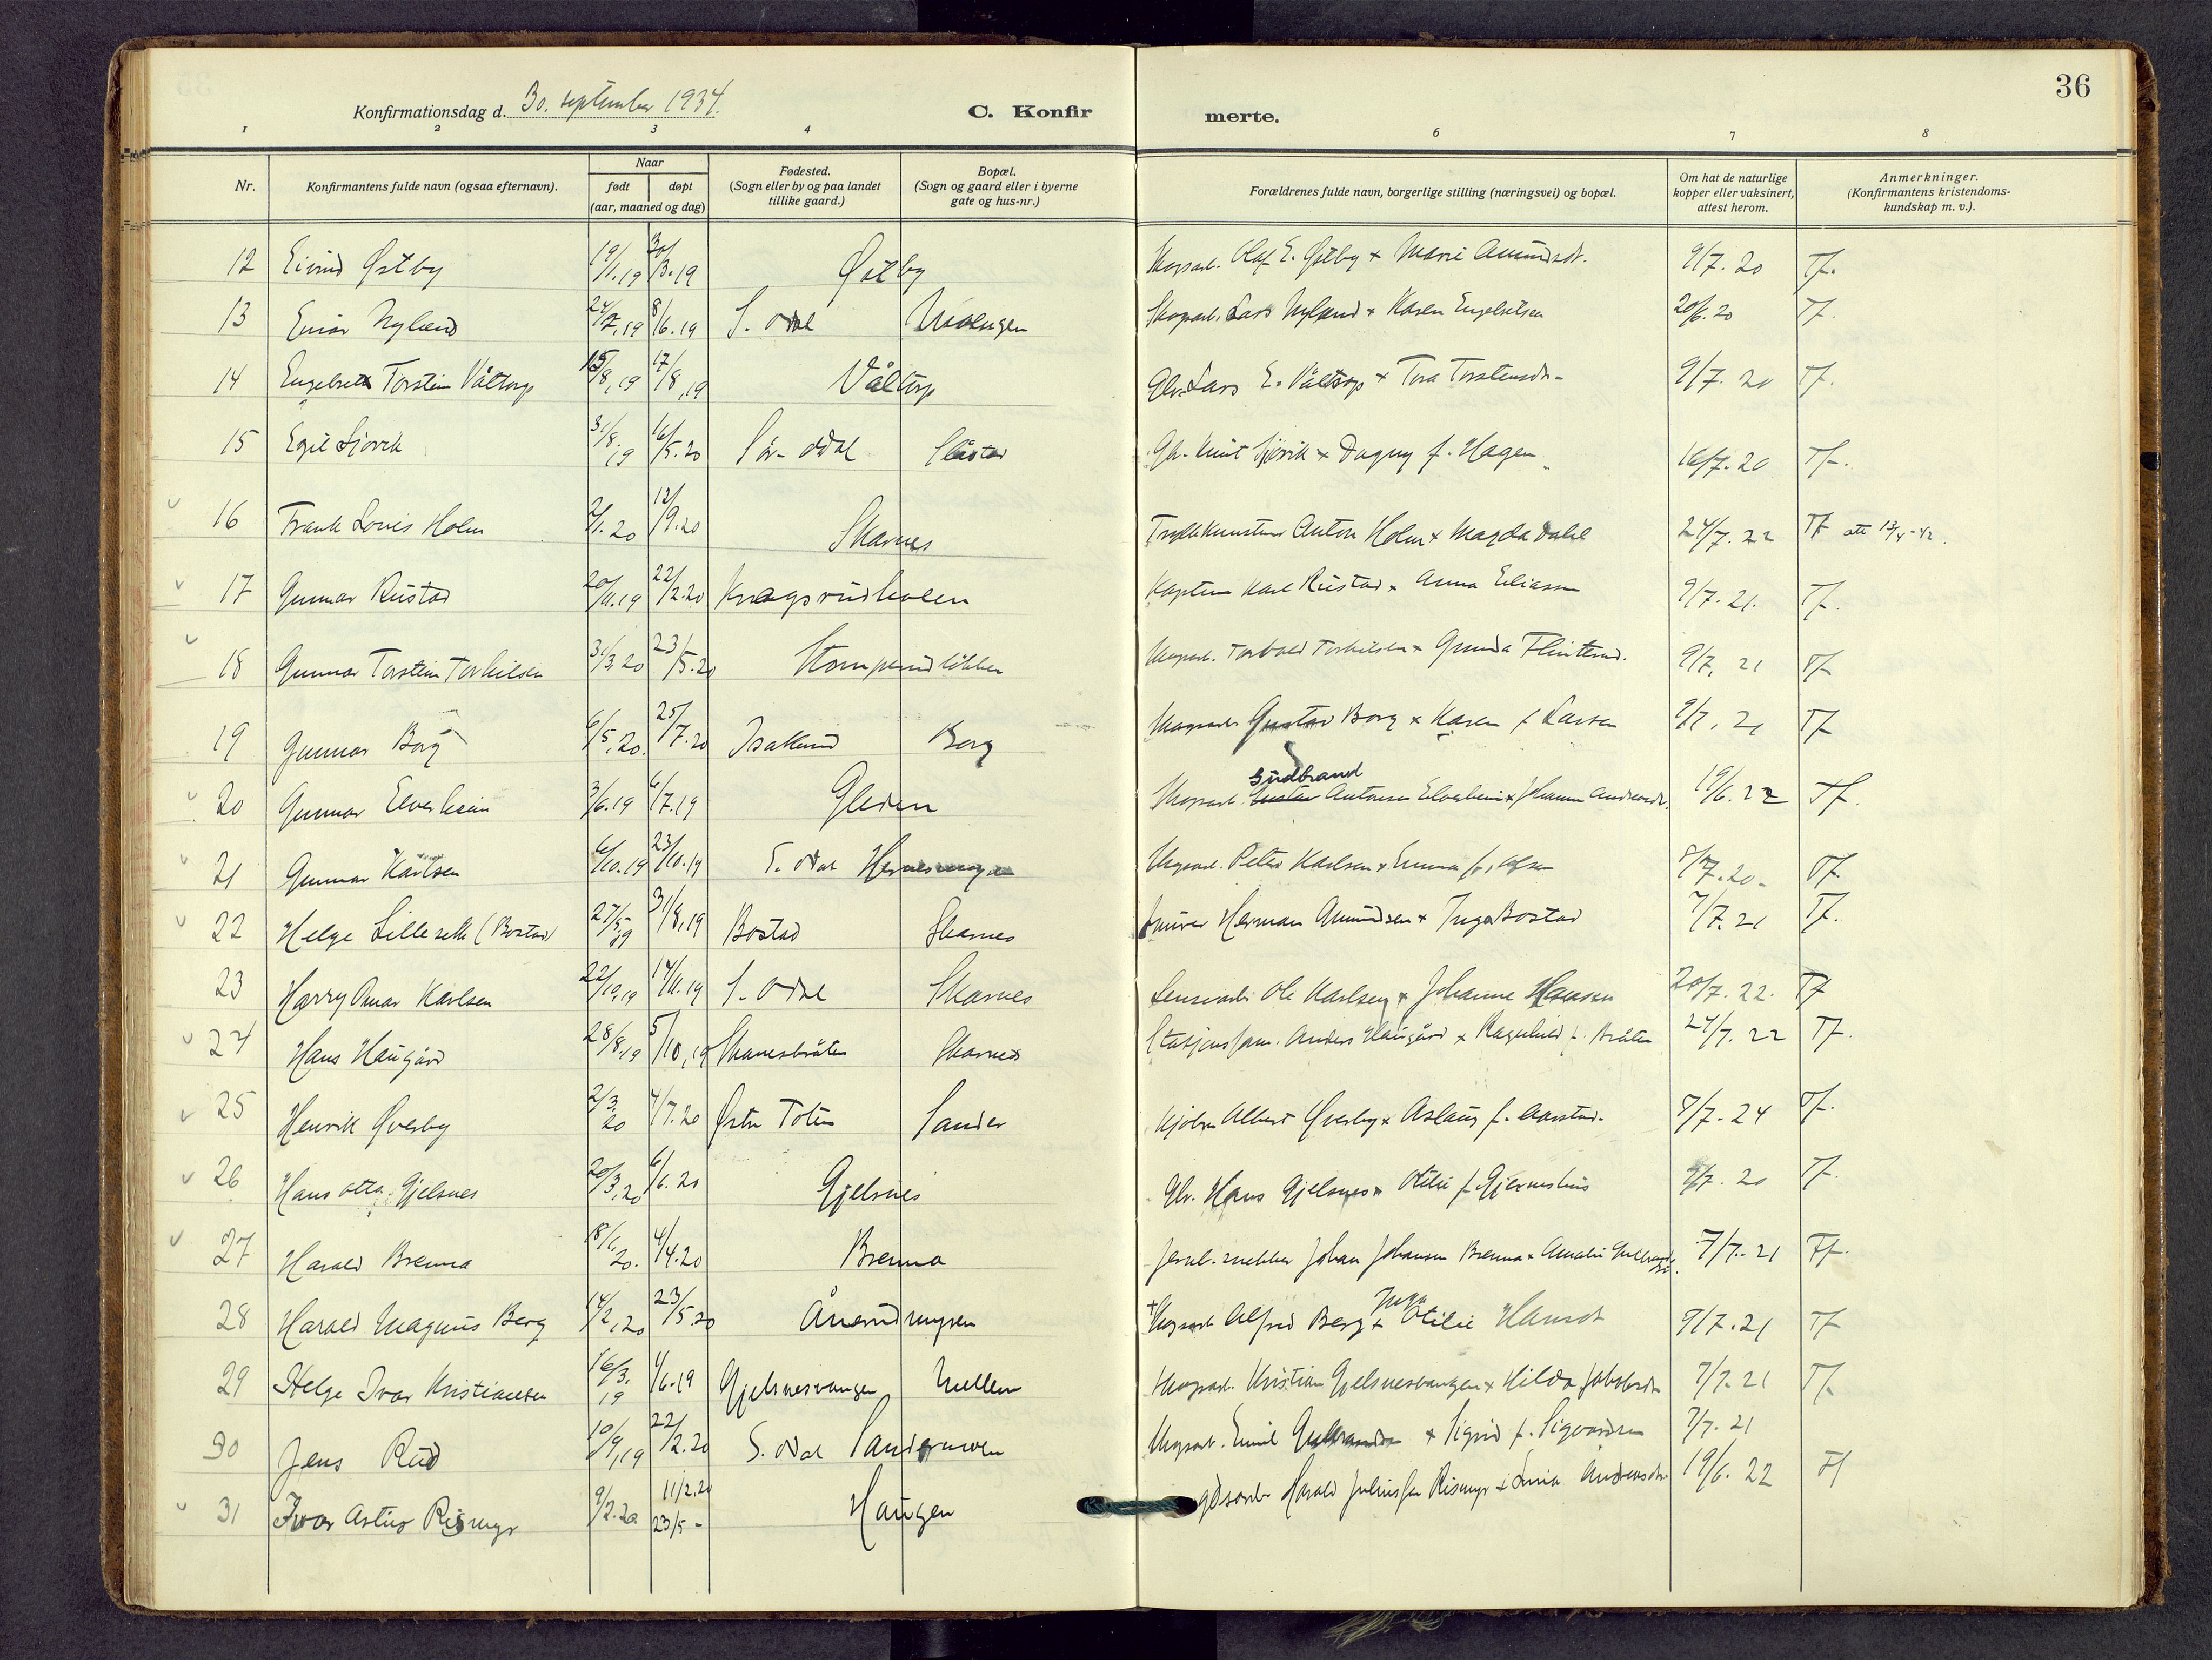 36
Konfirmationsdag d. 30. september 1934.
C. Konfir
merte.
1 2 3 4 6 7 8
Nr.
Konfirmantens fulde navn (ogsaa efternavn).
Naar
født
døpt
(aar, maaned og dag)
Fødested.
(Sogn eller by og paa landet
tillike gaard.)
Bopæl.
(Sogn og gaard eller i byerne
gate og hus-nr.)
Forældrenes fulde navn, borgerlige stilling (næringsvei) og bopæl.
Om hat de naturlige
kopper eller vaksinert,
attest herom.
Anmerkninger.
(Konfirmantens kristendoms-
kundskap m. v.).
12 Eivind Østby 19/1.19 30/3.19 Østby Skogsarb. Olaf E. Østby + Marie Amundsdt. 9/7. 20 Tf.
13 Einar Nyland 24/2.19 8/6.19 S. Odal Skogsarb. Lars Nyland + Karen Engebretsen 20/6.20 Tf.
14 Engebret Torstein Våltorp 15/8,19 17/8,19 Våltorp Gbr. Lars E. Våltorp + Tora Torstensdr. 9/7. 20 Tf.
15 Egil Sjøvik 31/8.19 16/5.20 Sør-Odal Gbr. Knut Sjøvik + Dagny f. Hagen 16/7.20 Tf.
16 Frank Louis Holm 2/1.20 12/9.20 Skarnes Tryllekunstner Anton Holm + Magda Dahl 24/7.22 Tf att 13/4-42.
17 Gunnar Rustad 20/11.19 22/2.20 Knagsrudholen Kaptein Karl Rustad + Anna Eliassen 9/7.21. Tf.
18 Gunnar Torstein Torkilsen 31/3.20 23/5.20 Stomperudløkken Skogsarb. Torvald Torkilsen + Gunda Flinterud. 9/7. 21 Tf
19 Gunnar Borg 6/5.20. 25/7.20 Isakerud Borg Skogsarb. Gustav Borg + Karen f Larsen 9/7. 21 Tf
Gudbrand
20 Gunnar Elverheim 3/6.19 6/7.19 Gleden Skogsarb. Gustav Antonsen Elverheim + Johanne Andreasdt. 19/6.22 Tf.
21 Gunnar Karlsen 6/10.19 23/10.19 S. Odal Skogsarb. Peter Karlsen + Emma f. Olsen 8/7.20. Tf.
22 Helge Lilleseth (Bostad) 27/5.19 31/8,19 Bostad Skarnes Murer Herman Amundsen + Inga Bostad 7/7.21 Tf.
23 Harry Omar Karlsen 22/10.19 14/11.19 S. Odal Skarnes Lensearb. Ole Karlsen + Johanne Hansen 20/7.22. Tf
24 Hans Haugård 28/8.19 5/10,19 Skarnesbråten Skarnes Stasjonsform. Anders Haugård + Ragnhild f. Bråten 24/7.22 Tf.
25 Henrik Øverby 2/3.20 4/7.20 Østre Toten Sander Kjøbm. Albert Øverby + Aslaug f. Aarstad. 7/7. 24 Tf.
26 Hans Otto Gjelsnes 20/3.20 6/6.20 Gjelsnes Gbr. Hans Gjelsnes + Otilie f. Gjermshus 9/7. 20 Tf.
27 Harald Brenna 18/1.20. 4/4.20 Brenna Jernb. snekker Johan Johansen Brenna + Amalie 7/7.21 Tf.
Inga
28 Harald Magnus Berg 14/2.20 23/5.20 Ånerudmyren + Skogsarb. Alfred Berg + Otilie Hansdt 9/7.21 Tf
29 Helge Ivar Kristiansen 16/3.19 1/6.19 Gjelsnesvangen Mellem Skogsarb. Kristian Gjelsnesvangen + Hilda Jakobsdt. 7/7.21 Tf.
30 Jens Rud 10/9,19 22/2.20 S. Odal Sandermoen Skogsarb. Emil Gulbrandsen + Sigrid f. Sigvardsen 7/7.21
31 Ivar Artur Rismyr 9/2.20 11/2.20 23/5 - Haugen gdsarb Harald Juliussen Rismyr + Andreasdt. 19/6. 22 Tf